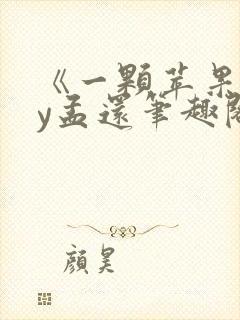 《一颗苹果
y孟还笔趣阁
颜昊